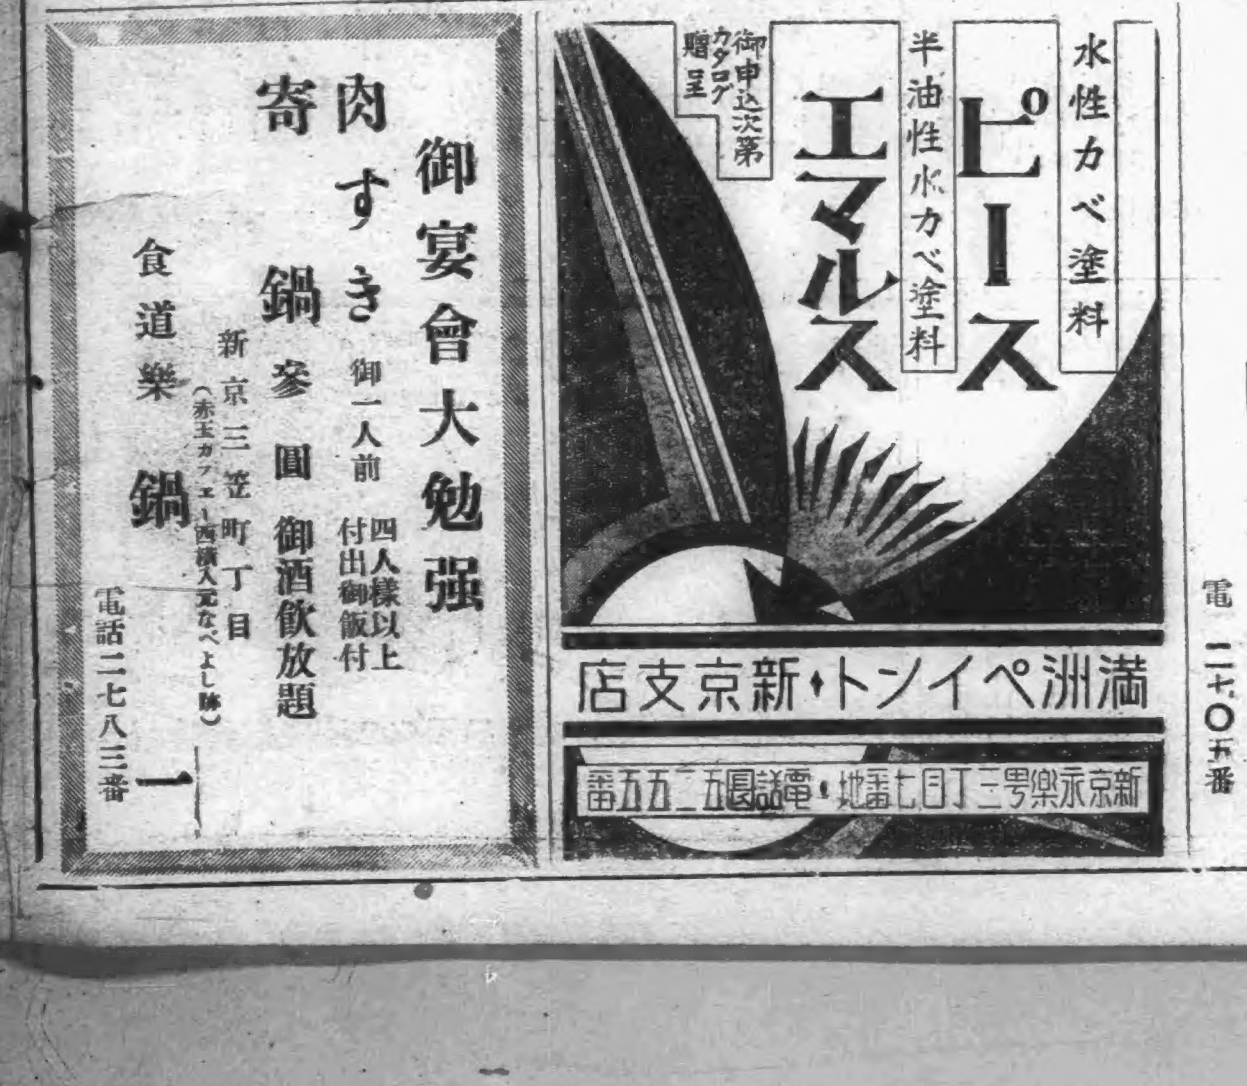 電二七〇五番
水性カベ塗料
ピース
半油性水カベ塗料
エマルス
御申込次第
カタログ
贈呈
満洲ペイント・新京支店
新京永楽甼三丁目七番地・電話長五二五五番
御宴會大勉强
肉すき 御一人前 四人様以上
付出御飯付
寄鍋 参圓 御酒飲放題
新京三笠町丁目
(赤玉カフエー西横入元なべよし跡)
食道樂 鍋一
電話二七八三番